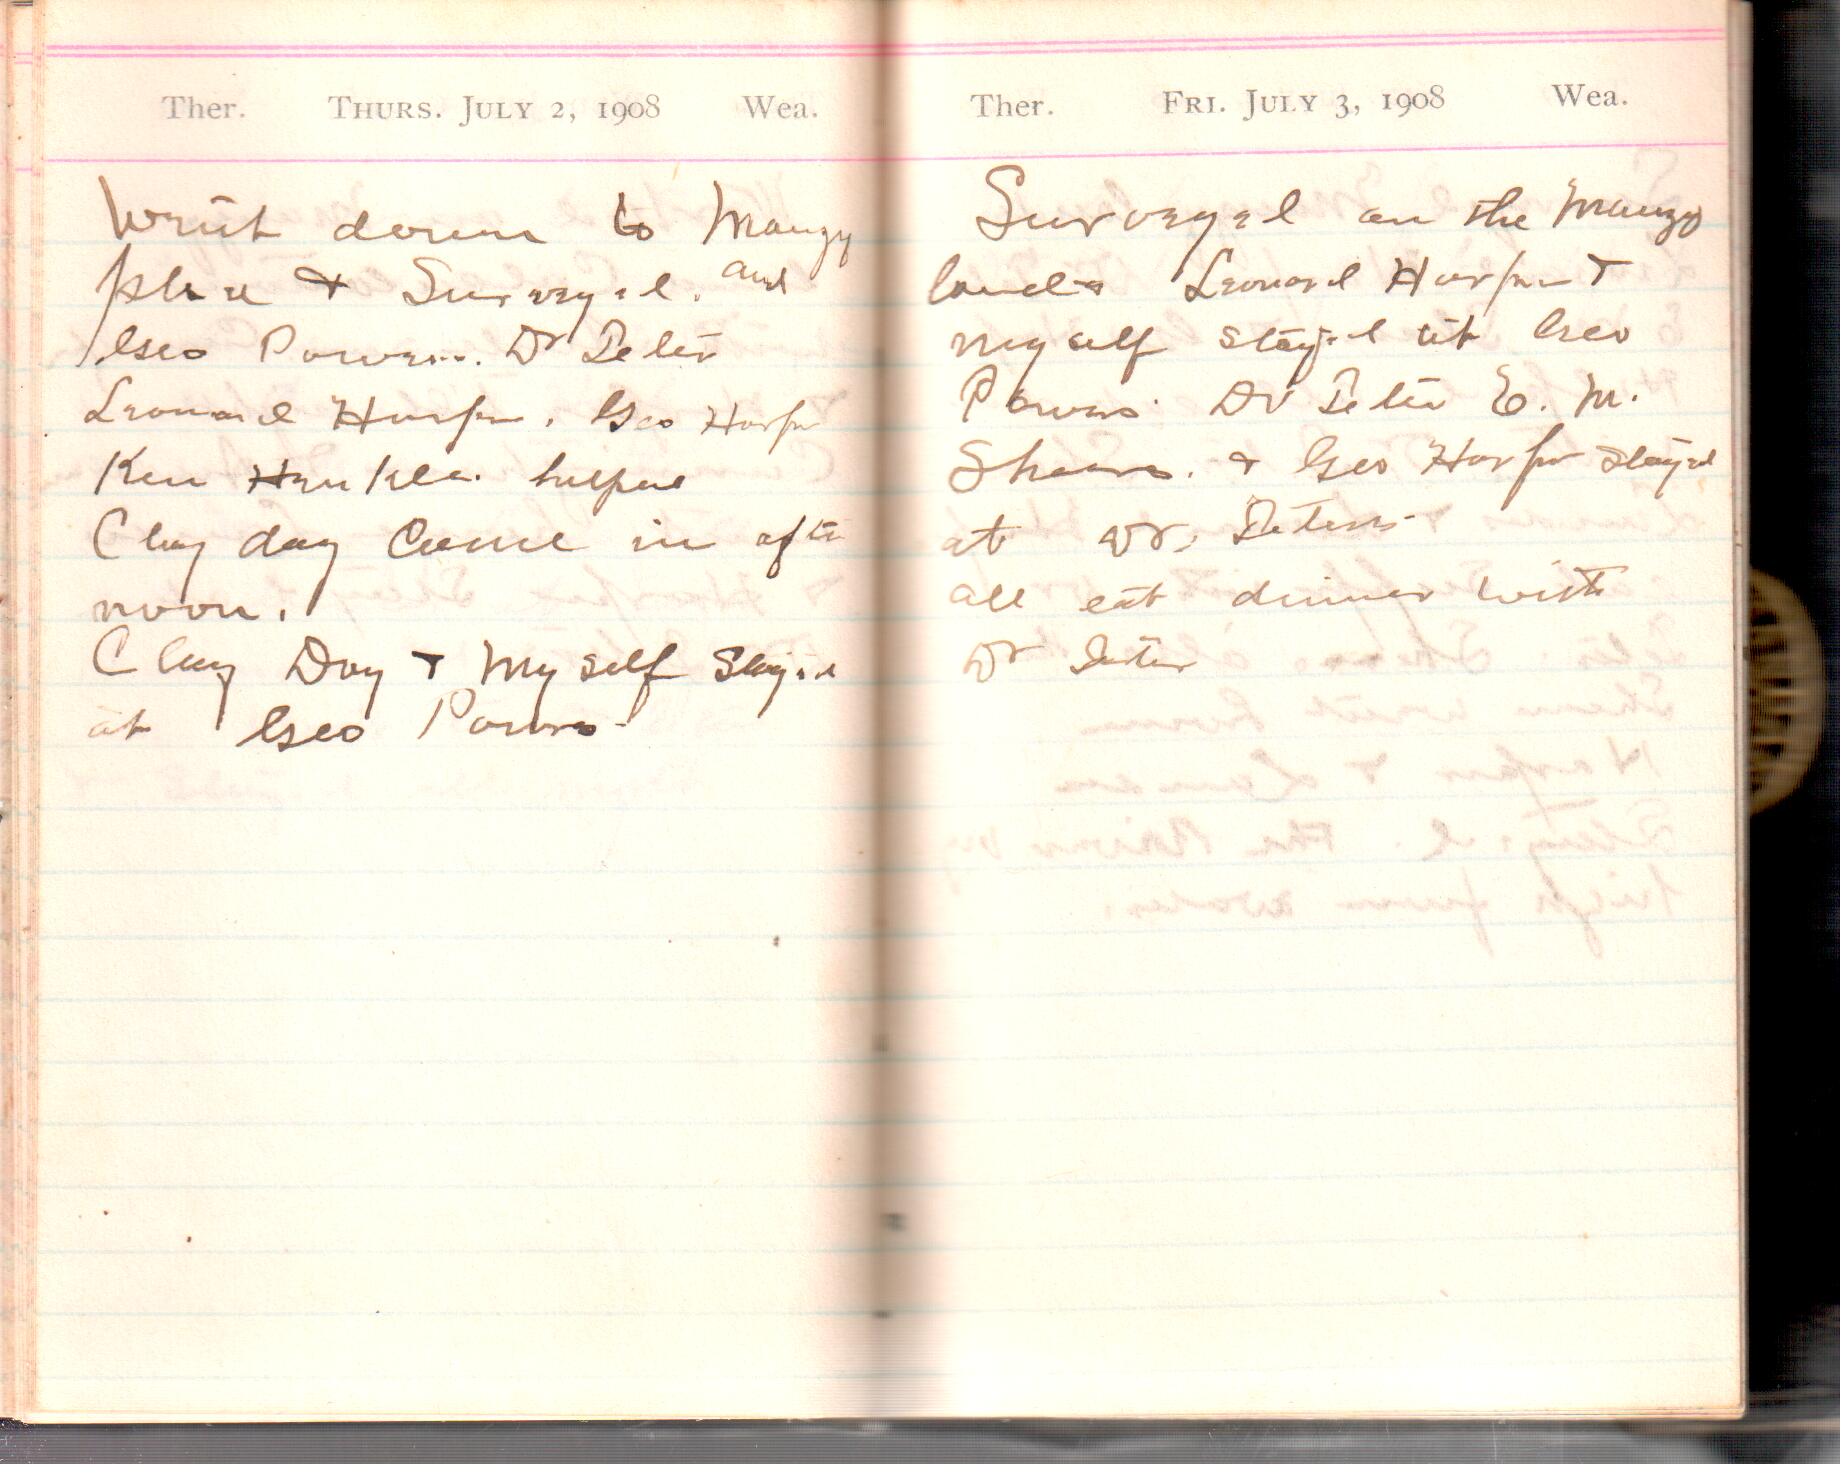 Ther. THURS. JULY 2, 1908 Wea.
Went down to Mauzy
place & Surveyed. and
Geo Powers. Dr Teter
Leonard Harper. Geo Harper
Ken Hinkle. helped
Clay day Came in after
noon.
Clay Day & Myself Stayed
at Geo Powers
Ther. FRI. JULY 3, 1908 Wea.
Surveyed on the Mauzy
lands Leonard Harper &
myself stayed at Geo
Powers Dr Teter E. M.
& Geo Harper stayed
at Dr. Teters
all eat dinner with
Dr Teter